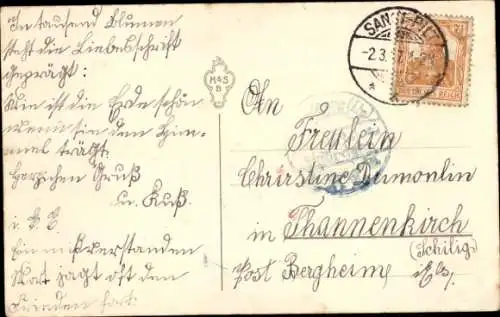 In tausend Blumen
steht die Liebesschrift
geprägt:
Wie ist die Erde schön
wenn sie den Him-
mel trägt.
Herzlichen Gruß
u. Kuß.
i. E.
Ein mißverstanden
Wort jagt oft den
Frieden fort.
M&S
B
SANKT PILT
-2.3.
DEUTSCHES REICH
An
Freulein
Chrirstine Dumonlin
in Thannenkirch
(Schilig)
Post Bergheim i/Els.